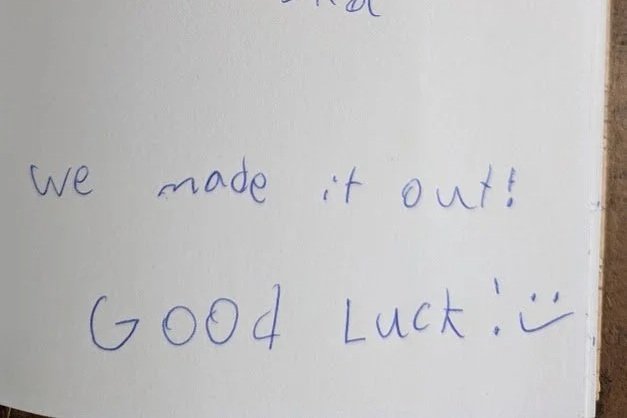 We made it out!
Good Luck! :)